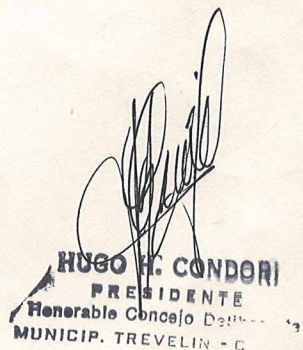 HUGO H. CONDORI
PRESIDENTE
Honorable Concejo
MUNICIP. TREVELIN - C